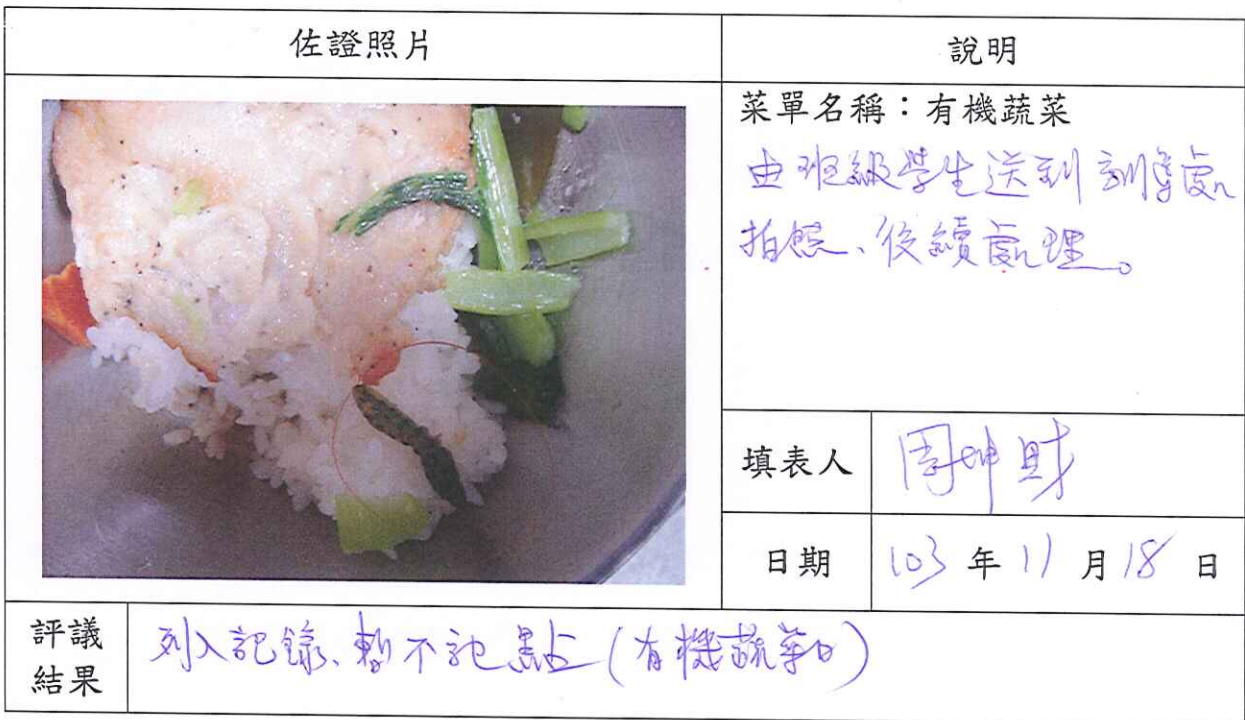 佐證照片
說明
菜單名稱：有機蔬菜
由班級學生送到訓導處
拍照、後續處理。
填表人 周坤財
日期 103 年 11 月 18 日
評議
結果
列入記錄、暫不記點(有機蔬菜日)